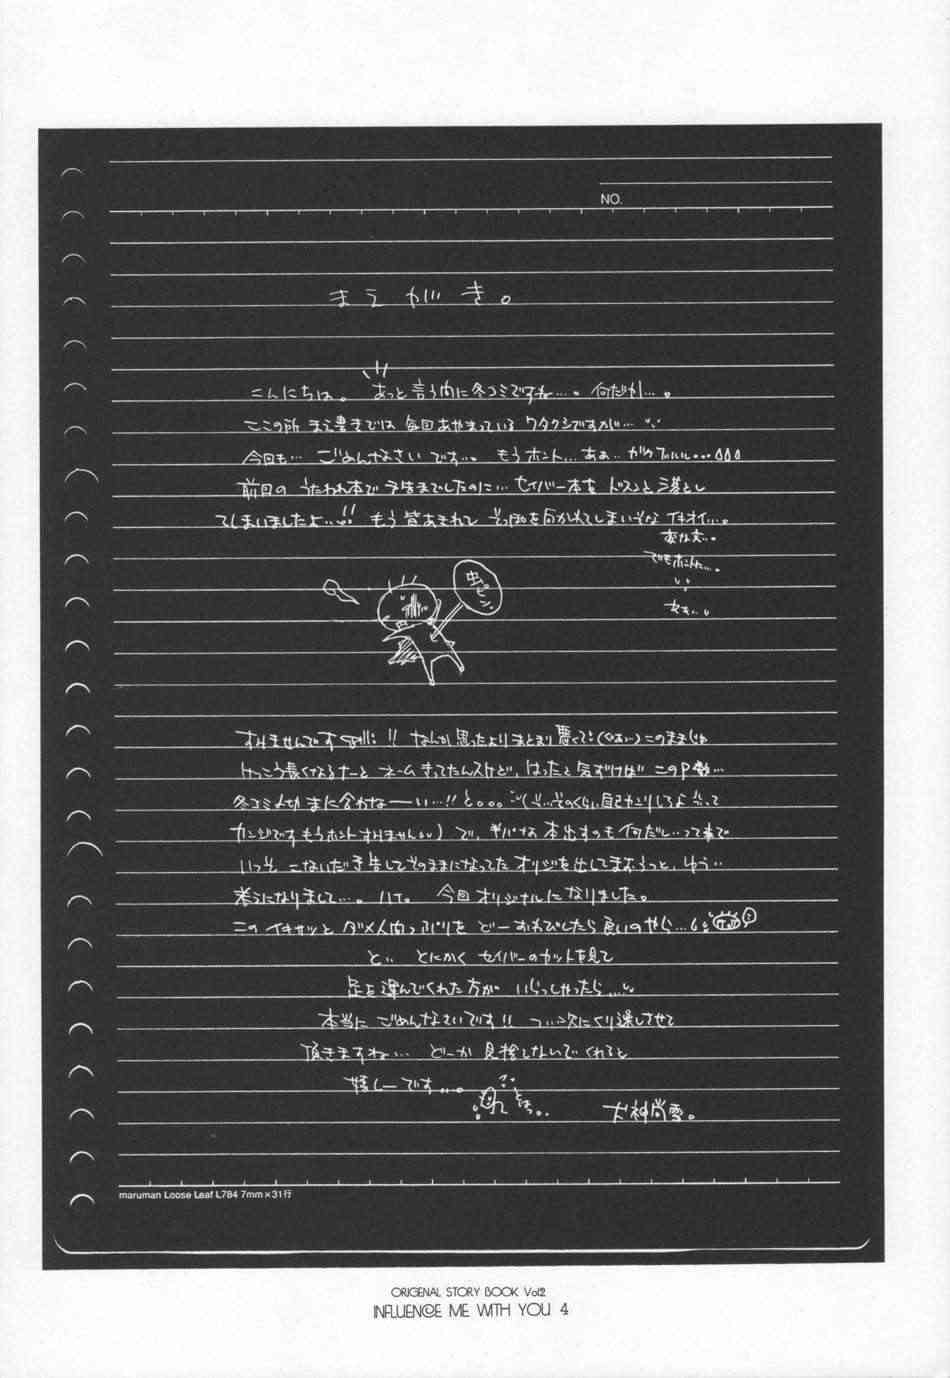 NO.
まえがき。
こんにちは。あっと言う間に冬コミですね…。何だか…。
ここの所 まえ書きでは 毎回あやまっている ワタクシですが…
今回も… ごめんなさいです…。もうホント…あぁ… ガクブルル…
前回の うたわれ本で 予告までしたのに… セイバー本を ドスンと落とし
てしまいましたよ…!! もう皆あきれて そっぽを向かれてしまいそうな イキオイ…。
変な文…。
でもホントに…。
虫ピン
すみませんです !! なんか思ったよりまとまり悪くて このままじゃ
けっこう長くなるナーと ネームきってたんスけど、はったと気づけば このP数…
冬コミ〆切 まに合わなーい…!! と。。。 (そのくらい自己カンリしろよ って
カンジです もうホント すみません) で、半パな本出すのも何だし…って事で
いっそ こないだ予告してそのままになってた オリジを出してまおうっと、ゆう
事になりまして…。ハイ。 今回 オリジナルになりました。
この イキサツと ダメ人間っぷりを どーおわびしたら良いのやら…
と とにかく セイバーのカットを見て
足を運んでくれた方が いらっしゃったら…
本当に ごめんなさいです!! つい次にくり越しさせて
頂きますね… どーか 見捨しないで くれると
嬉しーです…。
犬神尚雪。
maruman Loose Leaf L784 7mm×31行
ORIGENAL STORY BOOK Vol2
INFLUENCE ME WITH YOU 4